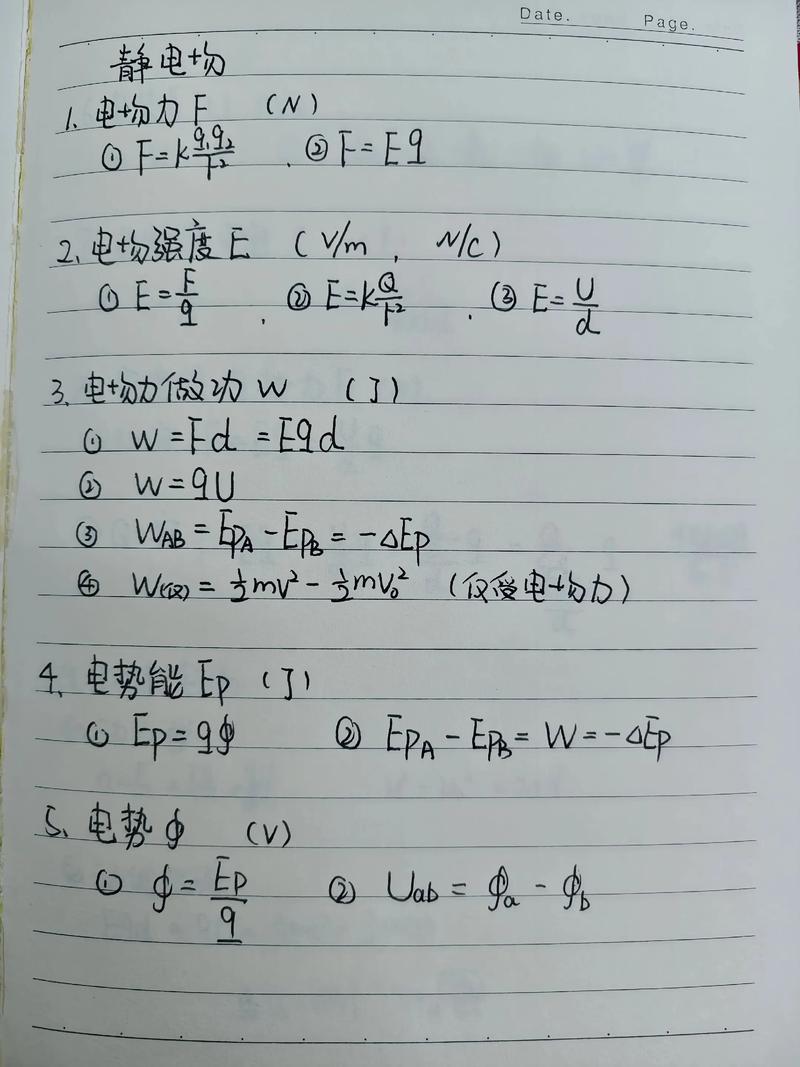 Date. Page.
静电场
1. 电场力 F (N)
① F=k\frac{q_1q_2}{r^2} . ② F=Eq
2. 电场强度 E (V/m , N/C)
① E=\frac{F}{q} . ② E=k\frac{Q}{r^2} . ③ E=\frac{U}{d}
3. 电场力做功 W (J)
① W=Fd=Eqd
② W=qU
③ W_{AB}=Ep_A-Ep_B=-△Ep
④ W(仅)=\frac{1}{2}mv^2-\frac{1}{2}mv_0^2 (仅受电场力)
4. 电势能 Ep (J)
① Ep=qφ ② Ep_A-Ep_B=W=-△Ep
5. 电势 φ (V)
① φ=\frac{Ep}{q} ② U_{ab}=φ_a-φ_b